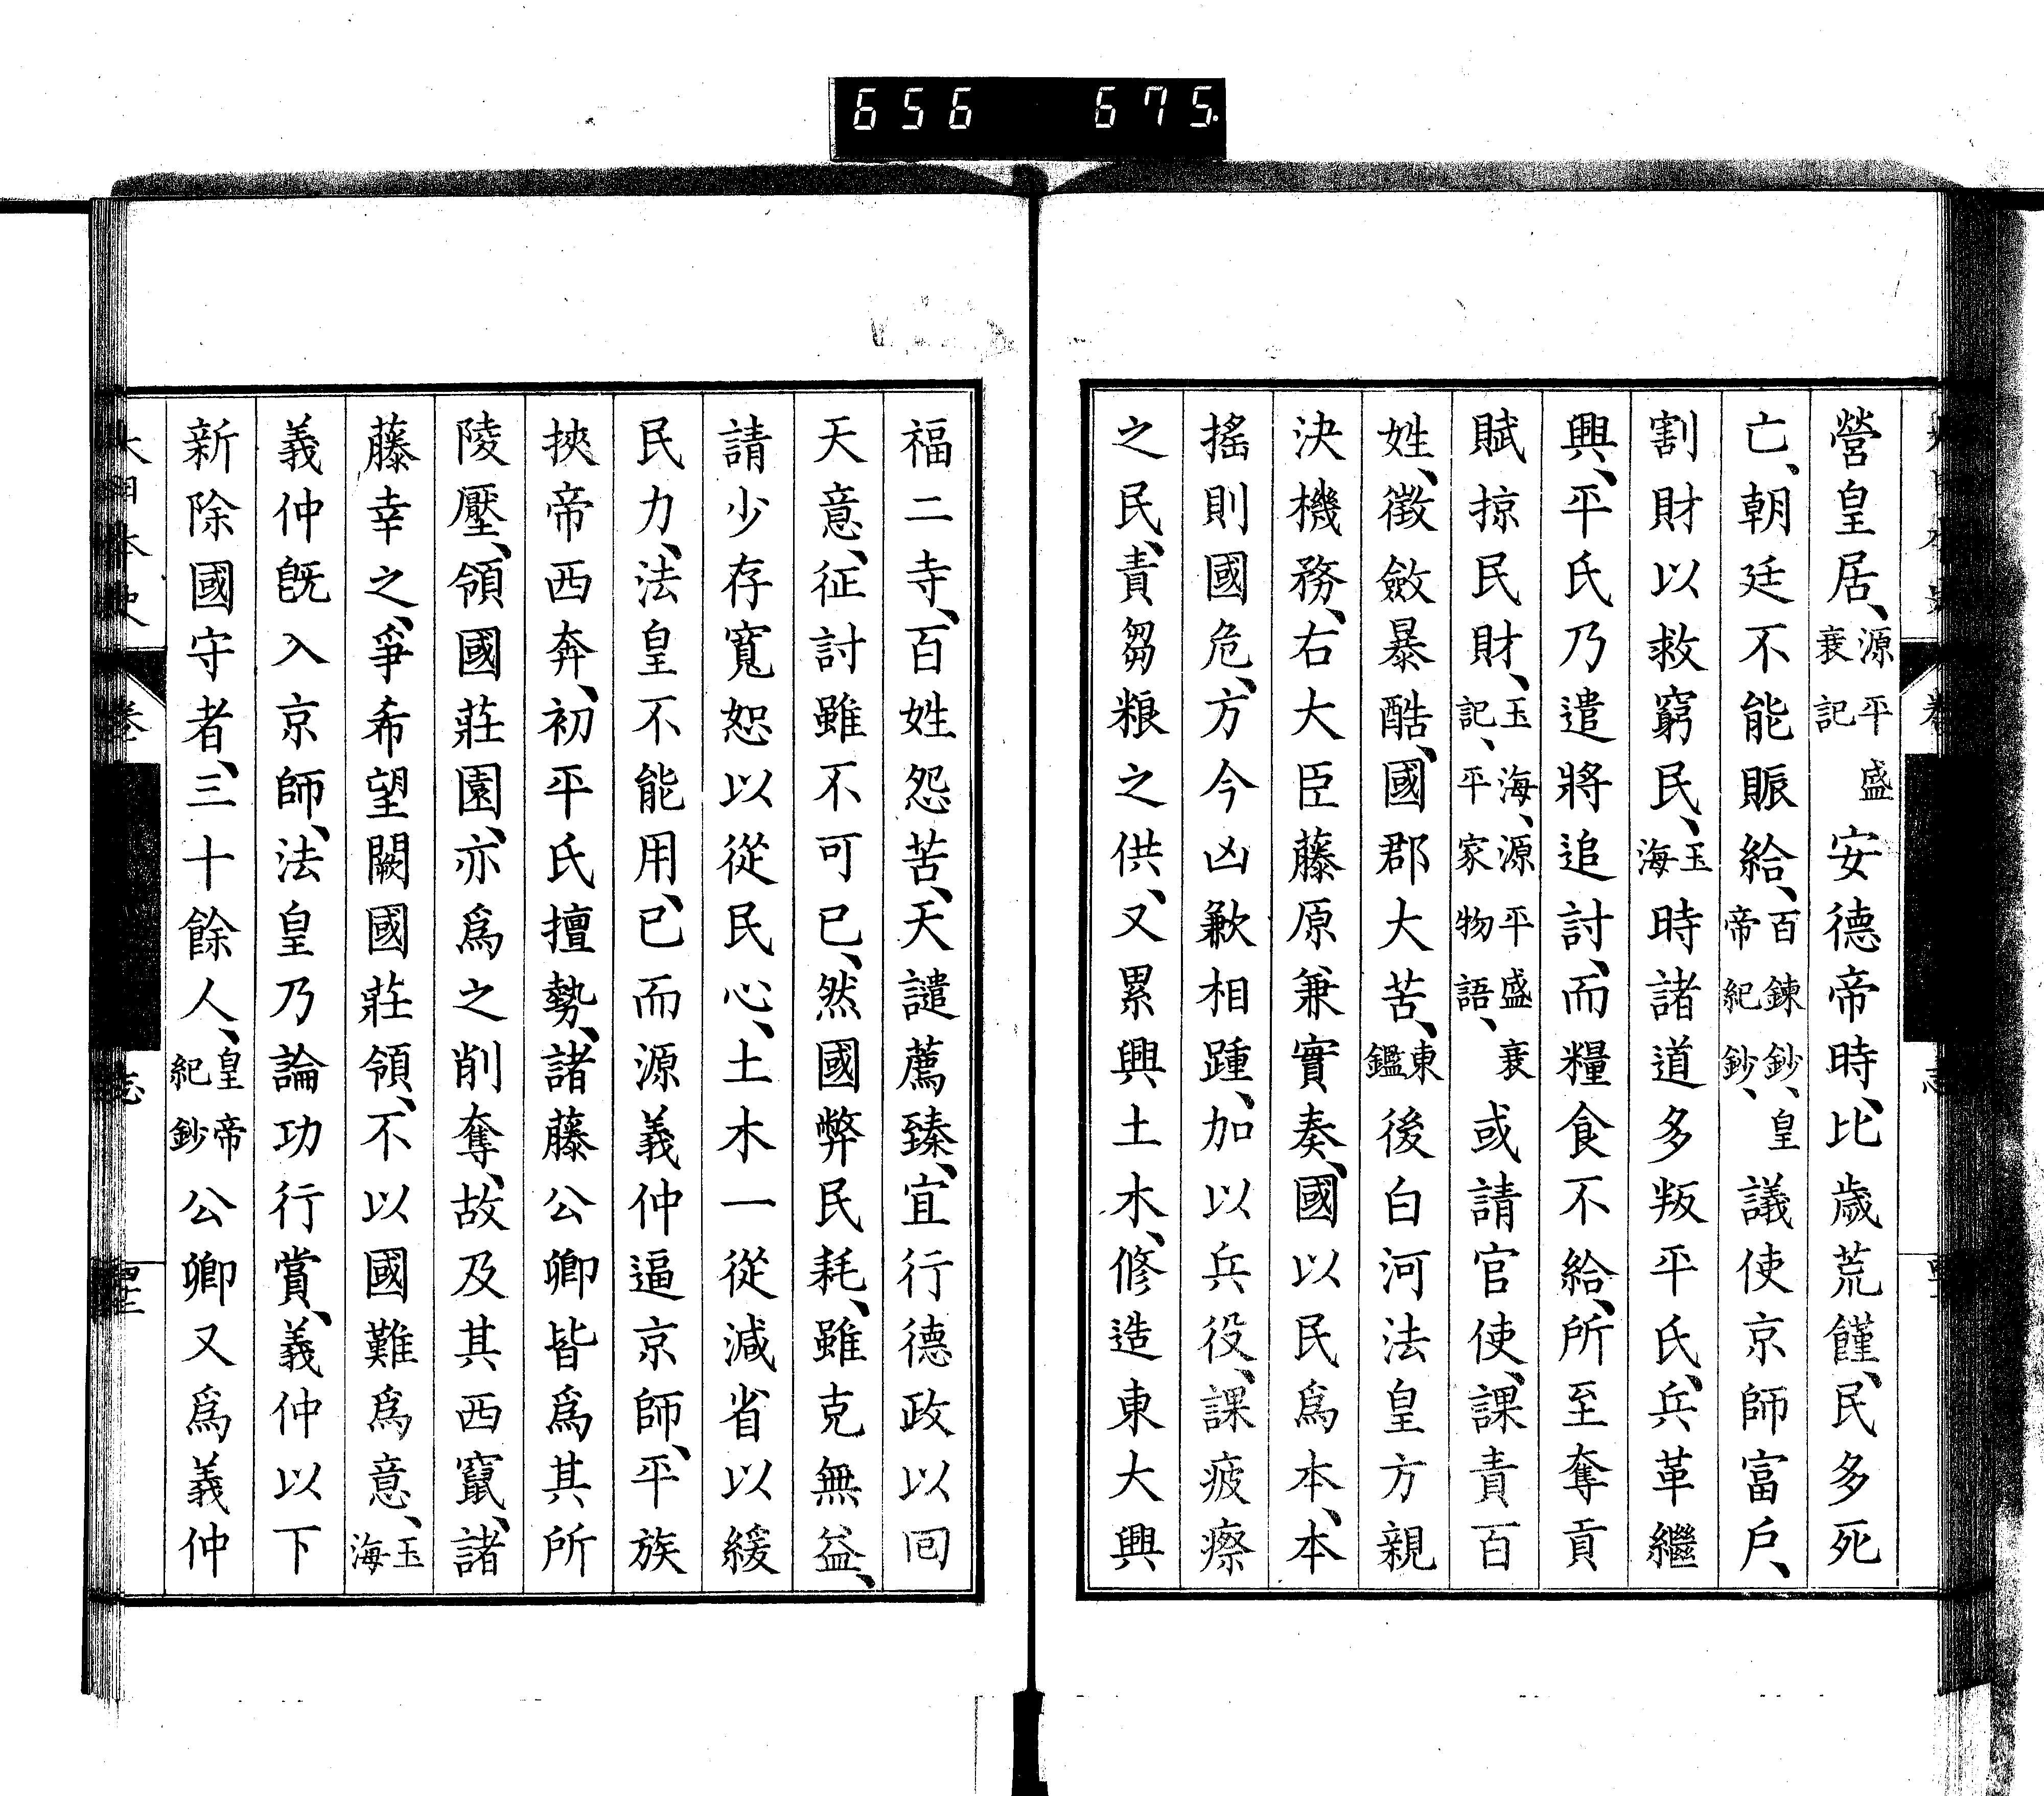 656 675
營皇居、源平盛衰記安德帝時、比歲荒饉、民多死
亡、朝廷不能賑給、百鍊鈔、皇帝紀鈔、議使京師富戶、
割財以救窮民、玉海時諸道多叛平氏、兵革繼
興、平氏乃遣將追討、而糧食不給、所至奪貢
賦掠民財、玉海、源平盛衰記、平家物語、或請官使、課責百
姓、徵斂暴酷、國郡大苦、東鑑後白河法皇方親
決機務、右大臣藤原兼實奏、國以民爲本、本
搖則國危、方今凶歉相踵、加以兵役、課疲瘵
之民、責芻粮之供、又累興土木、修造東大興
福二寺、百姓怨苦、天譴薦臻、宜行德政以囘
天意、征討雖不可已、然國弊民耗、雖克無益、
請少存寬恕以從民心、土木一從減省以緩
民力、法皇不能用、已而源義仲逼京師、平族
挾帝西奔、初平氏擅勢、諸藤公卿皆爲其所
陵壓、領國莊園、亦爲之削奪、故及其西竄、諸
藤幸之、爭希望闕國莊領、不以國難爲意、玉海
義仲旣入京師、法皇乃論功行賞、義仲以下
新除國守者、三十餘人、皇帝紀鈔公卿又爲義仲
大日本史 卷 志